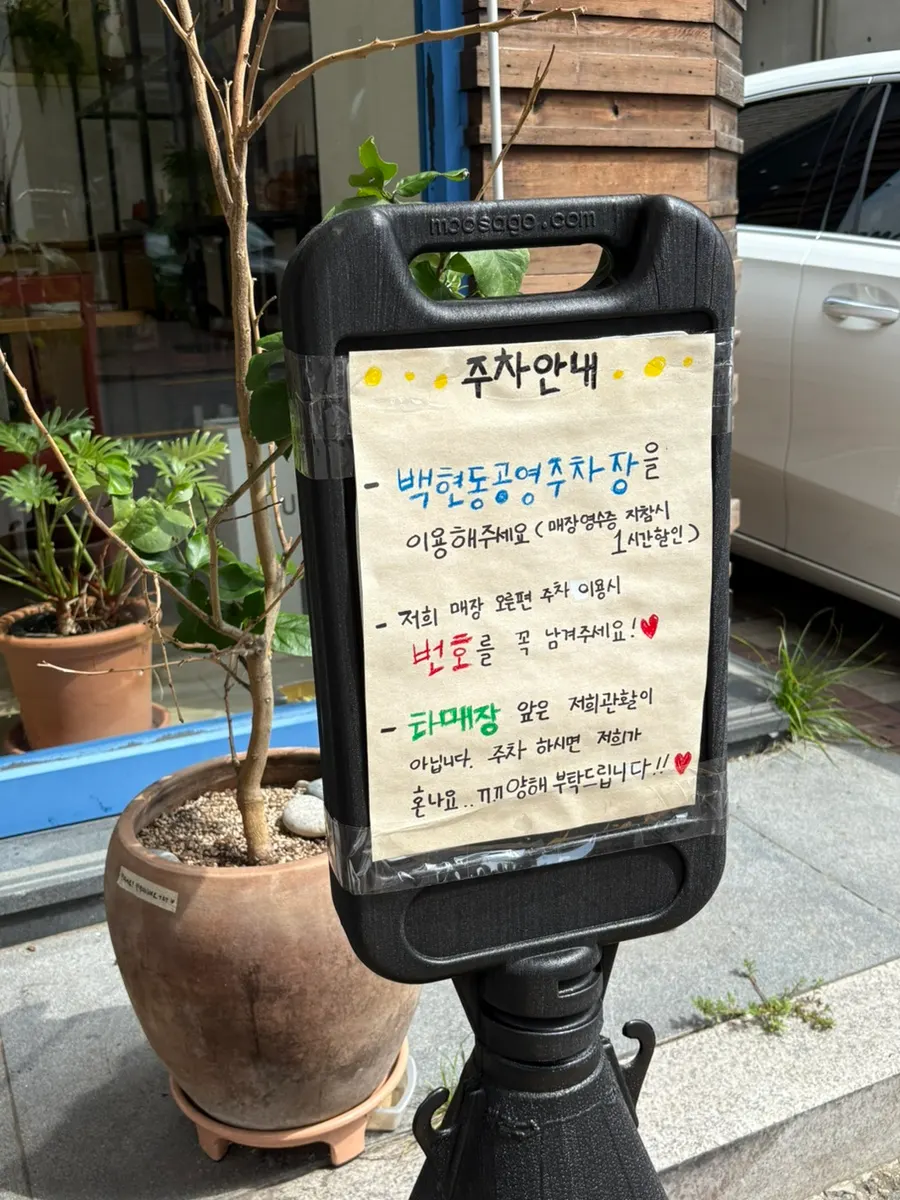 moosago.com
주차안내
- 백현동공영주차장을
이용해주세요 (매장영수증 지참시
1시간할인)
- 저희 매장 오른편 주차 이용시
번호를 꼭 남겨주세요!
- 타매장 앞은 저희관할이
아닙니다. 주차 하시면 저희가
혼나요.. ㄲㄲ양해 부탁드립니다!!